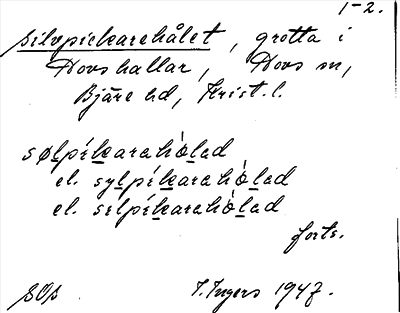 1-2.
Silvpickarehålet, grotta i
Hovs hallar, Hovs sn,
Bjäre hd, Krist. l.
sølpíkarahòlad
el. sylpíkarahòlad
el. silpíkarahòlad
forts.
SOs I. Ingers 1947.